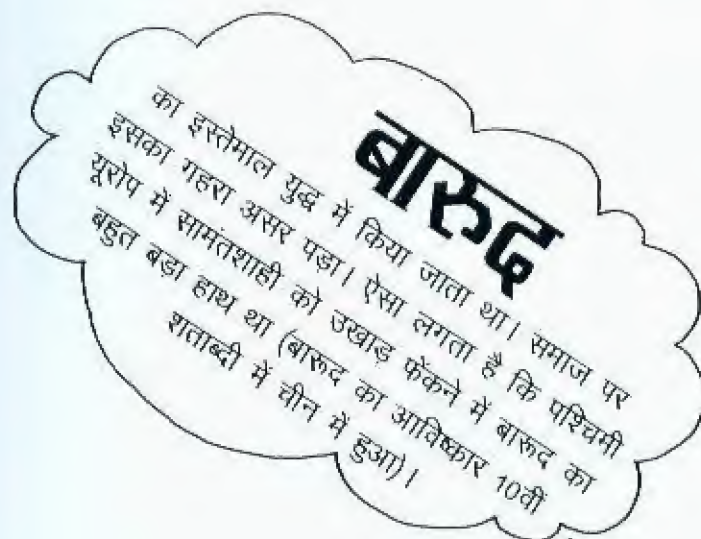 बारूद
का इस्तेमाल युद्ध में किया जाता था। समाज पर
इसका गहरा असर पड़ा। ऐसा लगता है कि पश्चिमी
यूरोप में सामंतशाही को उखाड़ फेंकने में बारूद का
बहुत बड़ा हाथ था (बारूद का आविष्कार 10वीं
शताब्दी में चीन में हुआ)।